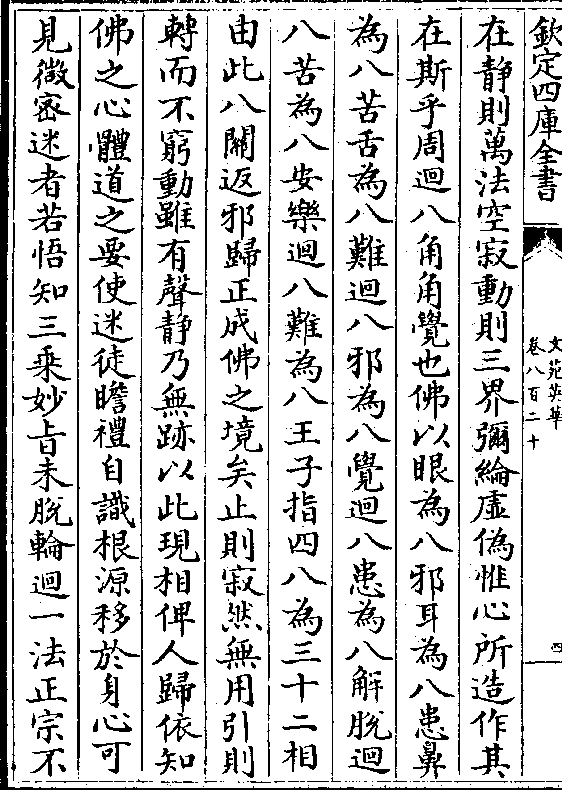 欽定四庫全書
文苑英華
卷八百二十
四
在静則萬法空寂動則三界彌綸虚偽惟心所造作其
在斯乎周迴八角角覺也佛以眼為八邪耳為八患鼻
為八苦舌為八難迴八邪為八覺迴八患為八解脱迴
八苦為八安樂迴八難為八王子指四八為三十二相
由此八關返邪歸正成佛之境矣止則寂然無用引則
轉而不窮動雖有聲静乃無跡以此現相俾人歸依知
佛之心體道之要使迷徒瞻禮自識根源移於身心可
見微密迷者若悟知三乘妙旨未脱輪迴一法正宗不